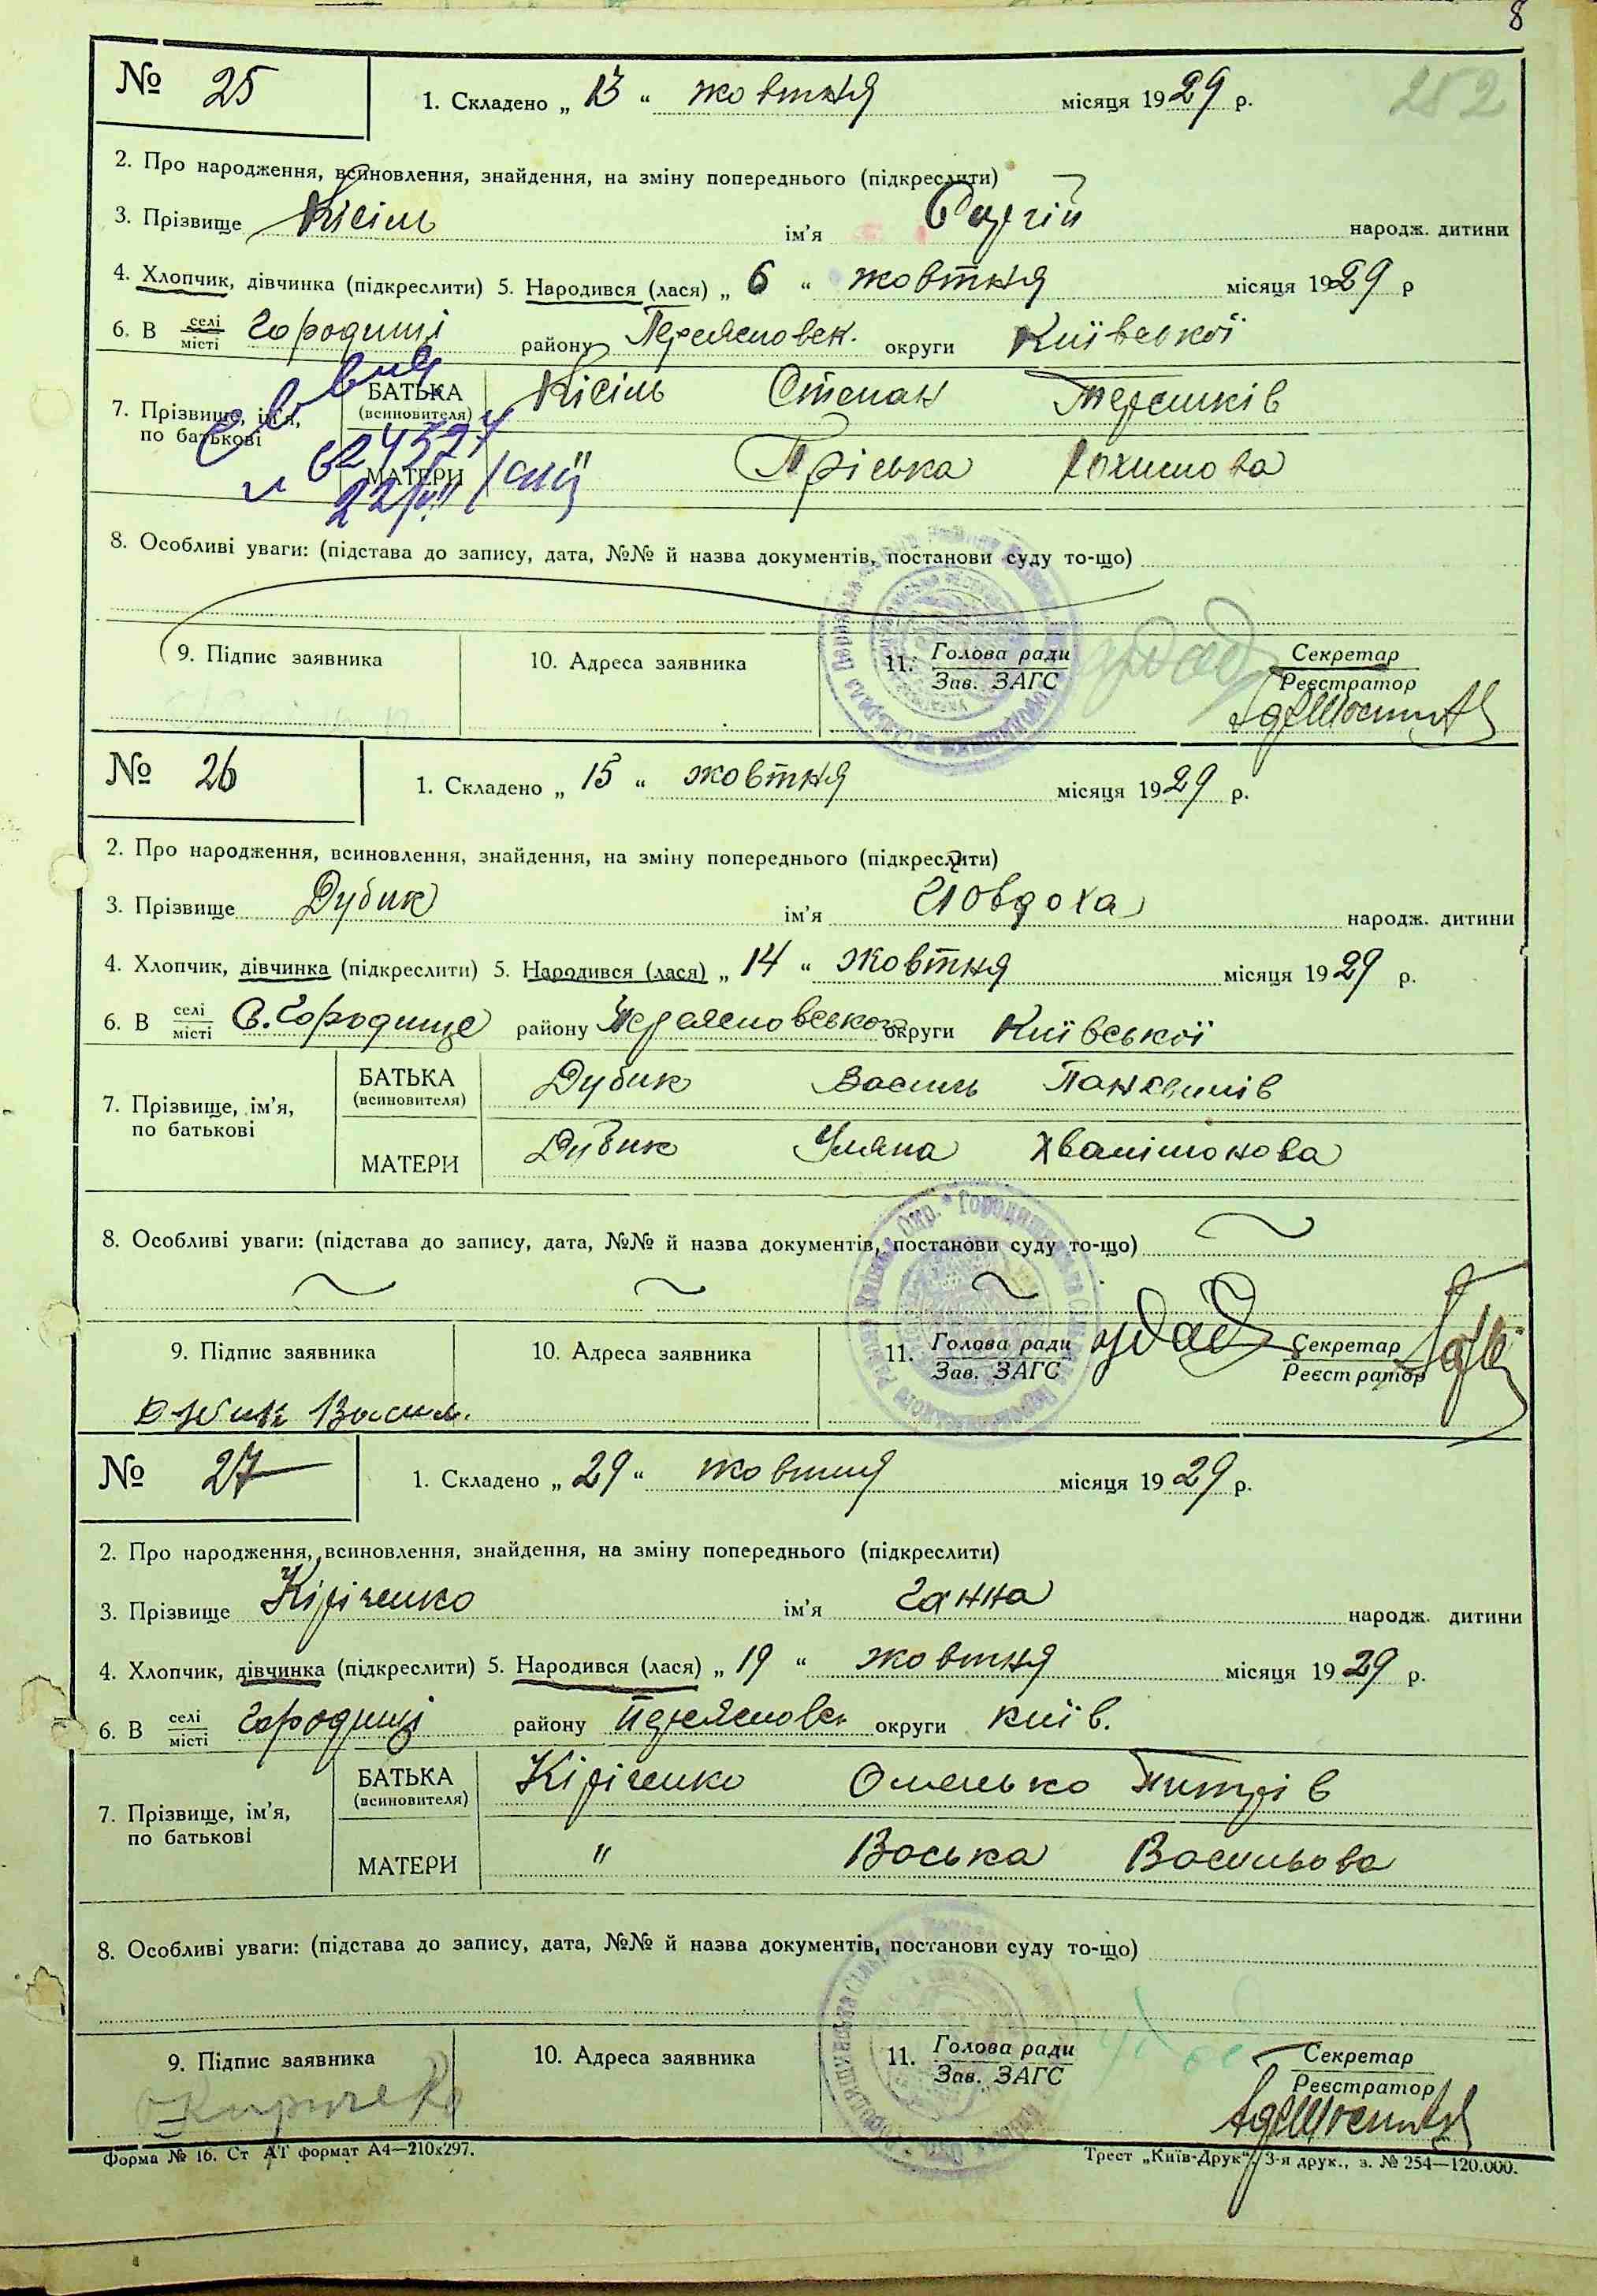 8
№ 25
1. Складено „ 13 “ жовтня місяця 1929 р.
252
2. Про народження, всиновлення, знайдення, на зміну попереднього (підкреслити)
3. Прізвище Кісіль ім’я Сергій народж. дитини
4. Хлопчик, дівчинка (підкреслити) 5. Народився (лася) „ 6 “ жовтня місяця 1929 р
6. В селі місті Городищі району Переясловськ. округи Київської
7. Прізвище, ім’я, по батькові
БАТЬКА (всиновителя) Кісіль Степан Терешків
МАТЕРИ Пріська
8. Особливі уваги: (підстава до запису, дата, №№ й назва документів, постанови суду то-що)
9. Підпис заявника 10. Адреса заявника 11. Голова ради Зав. ЗАГС Секретар Реєстратор
№ 26
1. Складено „ 15 “ жовтня місяця 1929 р.
2. Про народження, всиновлення, знайдення, на зміну попереднього (підкреслити)
3. Прізвище Дубик ім’я Явдоха народж. дитини
4. Хлопчик, дівчинка (підкреслити) 5. Народився (лася) „ 14 “ жовтня місяця 1929 р.
6. В селі місті С. Городище району Переясловського округи Київської
7. Прізвище, ім’я, по батькові
БАТЬКА (всиновителя) Дубик Василь
МАТЕРИ Дубик Уляна
8. Особливі уваги: (підстава до запису, дата, №№ й назва документів, постанови суду то-що)
9. Підпис заявника 10. Адреса заявника 11. Голова ради Зав. ЗАГС Секретар Реєстратор
№ 27
1. Складено „ 29 “ жовтня місяця 1929 р.
2. Про народження, всиновлення, знайдення, на зміну попереднього (підкреслити)
3. Прізвище Кіріченко ім’я Ганна народж. дитини
4. Хлопчик, дівчинка (підкреслити) 5. Народився (лася) „ 19 “ жовтня місяця 1929 р.
6. В селі місті Городищі району Переясловськ округи Київ.
7. Прізвище, ім’я, по батькові
БАТЬКА (всиновителя) Кіріченко Омелько
МАТЕРИ " Васька Васильова
8. Особливі уваги: (підстава до запису, дата, №№ й назва документів, постанови суду то-що)
9. Підпис заявника 10. Адреса заявника 11. Голова ради Зав. ЗАГС Секретар Реєстратор
Форма № 16. Ст АТ формат А4—210х297. Трест „Київ-Друк“, 3-я друк., з. № 254—120.000.